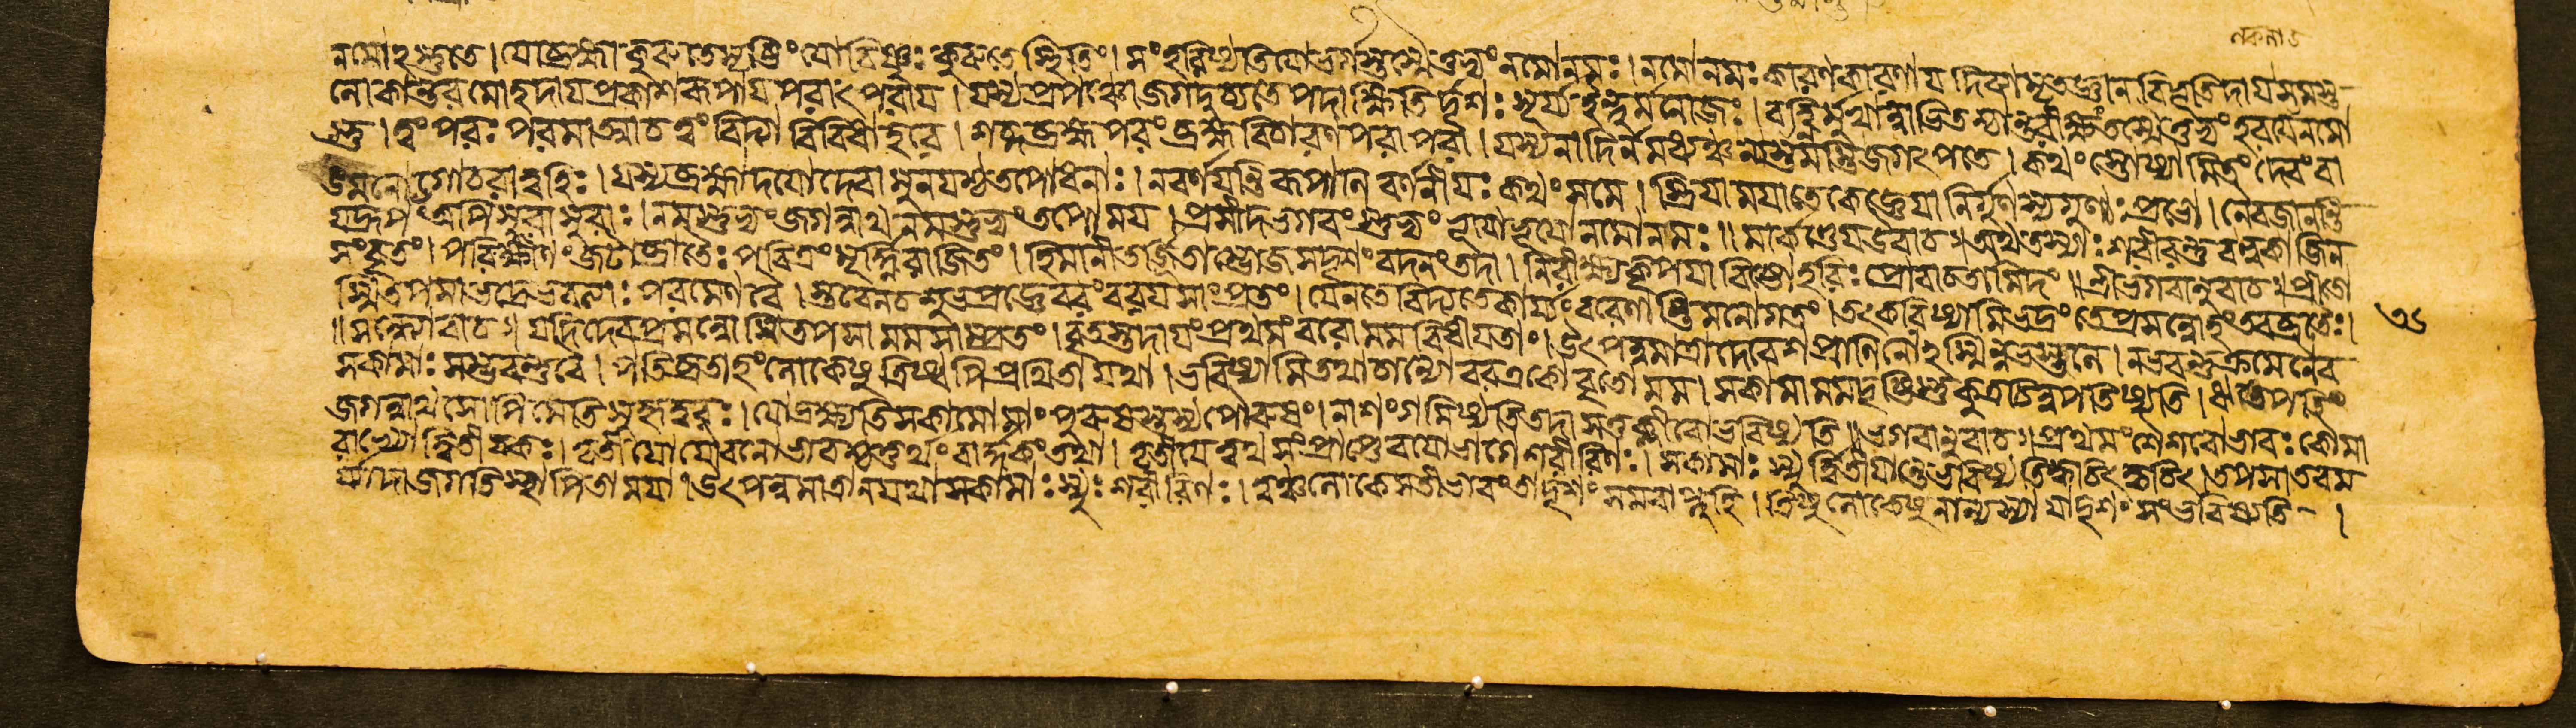 নমোঽস্তুতে। যোব্রহ্মা কুরুতেসৃষ্টিং যোবিষ্ণুঃ কুরুতেস্থিতিং। সংহরিষ্যতিযোভর্গস্তস্মৈতুভ্যং নমোনমঃ। নমোনমঃ কারণকারণায দিব্যামৃতজ্ঞানবিভূতিদায সমস্ত
লোকান্তরমোহদায প্রকাশরূপায পরাৎপরায। যস্যপ্রপঞ্চোজগদুচ্যতেপদাৎক্ষিতির্দিশঃ সূর্য্যইন্দুর্মনোজঃ। বহ্নির্মুখান্নাভিতশ্চান্তরীক্ষং তস্মৈতুভ্যং হরযেনমো
স্তু। ত্বং পরঃ পরমাত্মাচ ত্বং বিদ্যা বিবিধাহরে। শব্দব্রহ্মপরং ব্রহ্মবিচারণপরাপরা। যস্যনাদির্নমধ্যঞ্চ নান্তমস্তিজগৎপতে। কথং স্তোষ্যামিতং দেবং বা
ঙ্মনোগোচরাদ্বহিঃ। যস্যব্রহ্মাদযোদেবা মুনযশ্চতপোধনাঃ। নবর্ণযন্তিরূপাণি বর্ণনীযঃ কথং সমে। স্ত্রিযামযাতেকেজ্ঞেযা নির্গুণস্যগুণাঃ প্রভো। নৈবজানন্তি
যদ্রূপং অপিসুরাসুরাঃ। নমস্তুভ্যং জগন্নাথ নমস্তুভ্যং তপোময। প্রসীদভগবংস্তুভ্যং ভূযোভূযোনমোনমঃ॥ মার্কণ্ডেযউবাচ॥ অথতস্যাঃ শরীরন্তু বল্কলাজিন
সংবৃতং। পরিক্ষীণং জটাব্রাতৈঃ পবিত্রং মূর্দ্ধ্নিরাজিতং। হিমানীতর্জিতাম্ভোজসদৃশং বদনংতদা। নিরীক্ষ্যকৃপযাবিষ্টোহরিঃ প্রোবাচতামিদং॥ শ্রীভগবানুবাচ॥ প্রীতো
স্মিতপসাভদ্রেভবত্যাঃ পরমেণবৈ। স্তবেনচশুভপ্রজ্ঞেবরং বরযসাংপ্রতং। যেনতেবিদ্যতেকার্য্যং বরেণাস্তিমনোগতং। তৎকরিষ্যামিভদ্রং তেপ্রসন্নোহং তবব্রতৈঃ।
॥ সন্ধ্যোবাচ॥ যদিদেবপ্রসন্নোসিতপসামমসাম্প্রতং। বৃতস্তদাযং প্রথমং বরোমমবিধীযতাং। উৎপন্নমাত্রাদেবেশপ্রাণিনোঽস্মিন্নভস্তলে। নভবন্তুক্রমেণৈব
সকামাঃ সম্ভবন্তুবৈ। পতিব্রতাহং লোকেষু ত্রিষ্বপিপ্রথিতাযথা। ভবিষ্যামিতথাচান্যো বরএকোবৃতোমম। সকামামমদৃষ্টিস্তুকুত্রচিন্নপতিষ্যতি। ঋতেপতিং
জগন্নাথসোপিমেতিসুহৃত্তরঃ। যোদ্রক্ষ্যতিসকামোমাং পুরুষস্তস্যপৌরুষং। নাশংগমিষ্যতিতদা সতুক্লীবোভবিষ্যতি॥ ভগবানুবাচ॥ প্রথমং শৈশবোভাবঃ কৌমা
রাখ্যোদ্বিতীযকঃ। তৃতীযোযৌবনোভাবশ্চতুর্থং বার্দ্ধকংতথা। তৃতীযেত্বথ সংপ্রাপ্তেবযোভাগেশরীরিণঃ। সকামাঃ স্যুর্দ্বিতীযান্তেভবিষ্যতিক্বচিৎক্বচিৎ। তপসাতবম
র্য্যাদাজগতিস্থাপিতামযা। উৎপন্নমাত্রানযথাসকামাঃ স্যুঃ শরীরিণঃ। ত্বঞ্চলোকেসতীভাবং তাদৃশং সমবাপ্নুহি। ত্রিষুলোকেষুনান্যস্যাযাদৃশং সংভবিষ্যতি-।